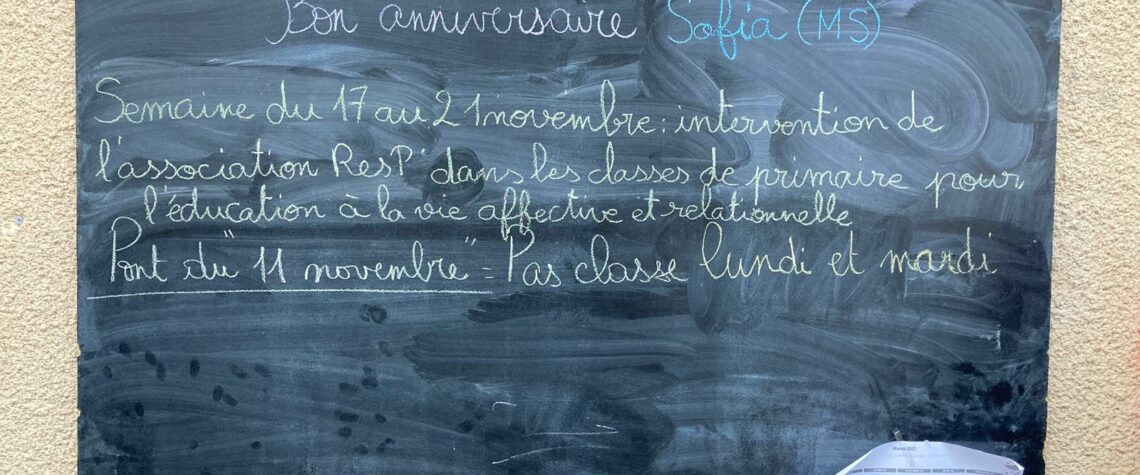 Bon anniversaire Sofia (MS)
Semaine du 17 au 21 novembre : intervention de
l'association ResP' dans les classes de primaire pour
l'éducation à la vie affective et relationnelle
Pont du "11 novembre" = Pas classe lundi et mardi